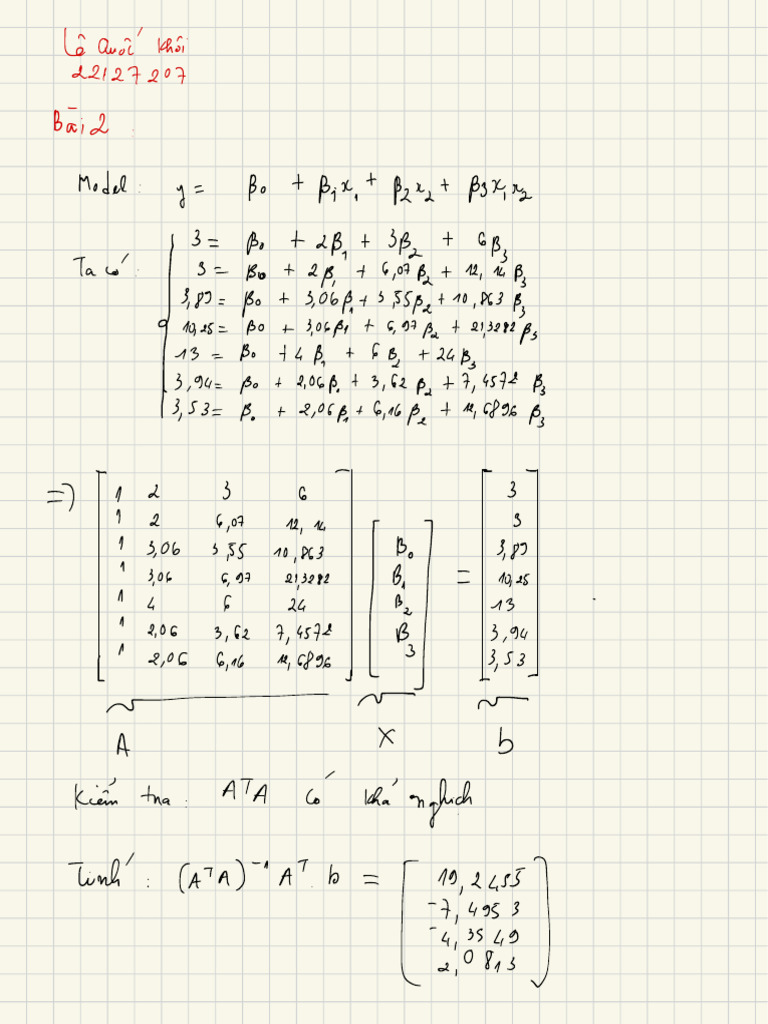 Lê Quốc Khôi
22127207
Bài 2 :
Model : y = β0 + β1x1 + β2x2 + β3x1x2
Ta có :
3 = β0 + 2β1 + 3β2 + 6β3
3 = β0 + 2β1 + 6,07β2 + 12,14β3
3,89 = β0 + 3,06β1 + 3,55β2 + 10,863β3
10,25 = β0 + 3,06β1 + 6,97β2 + 21,3282β3
13 = β0 + 4β1 + 6β2 + 24β3
3,94 = β0 + 2,06β1 + 3,62β2 + 7,4572β3
3,53 = β0 + 2,06β1 + 6,16β2 + 12,6896β3
=> 1 2 3 6 3
1 2 6,07 12,14 3
1 3,06 3,55 10,863 B0 3,89
1 3,06 6,97 21,3282 B1 = 10,25
1 4 6 24 B2 13
1 2,06 3,62 7,4572 B3 3,94
1 2,06 6,16 12,6896 3,53
A X b
Kiểm tra : AᵀA có khả nghịch
Tính : (AᵀA)⁻¹ Aᵀ. b =
19,2455
-7,4953
-4,3549
2,0813